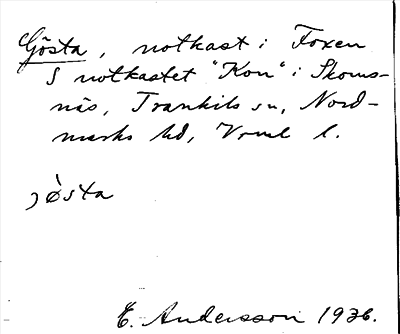 Gösta, notkast i Foxen
S notkastet "Kon" i Skoms-
näs, Trankils sn, Nord-
marks hd, Vrml l.
jòsta
E. Andersson 1936.